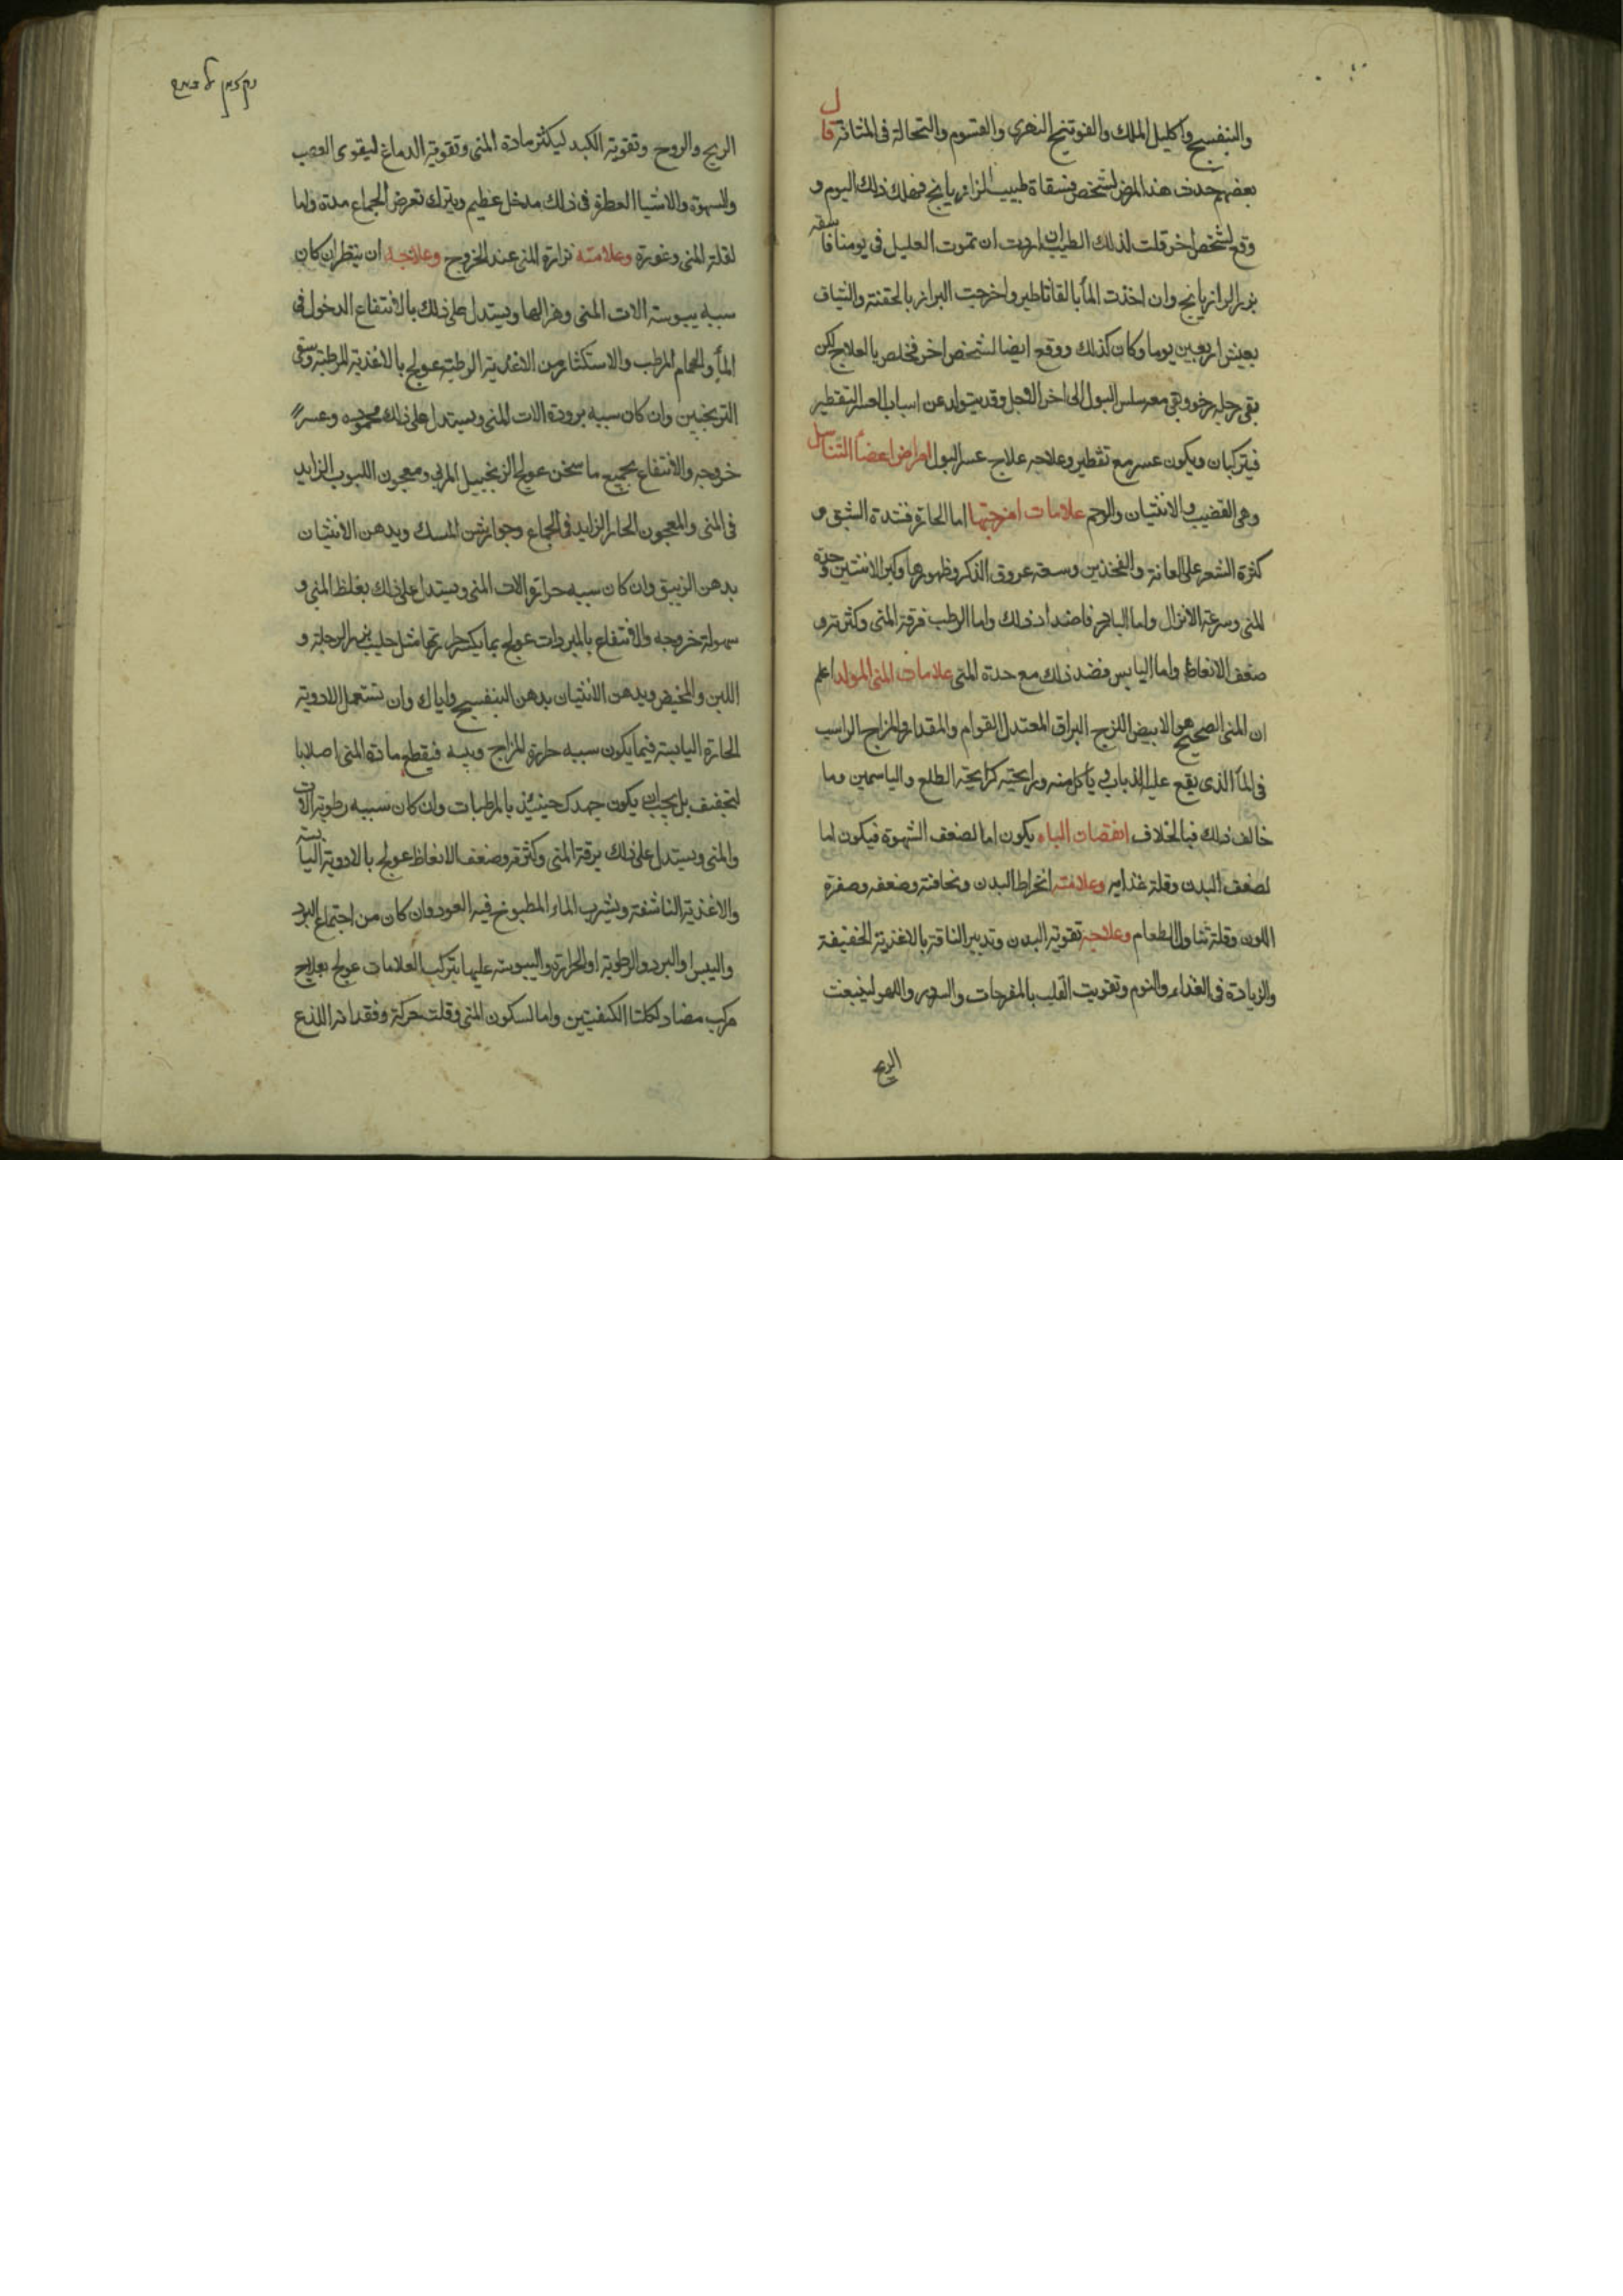 والبنفسج واكليل الملك والفوتنج النهري والقسوم والنحالة فى المثانة قال
بعضهم حدث هذا المرض لشخص فسقاة طبيب الرازيانج فهلك ذلك اليوم و
وقع لشخص اخر قلت لذلك الطبيب ان اردت ان تموت العليل فى يومنا فاسقه
بزر الرازيانج وان اخذت المأ بالقاثاطير واخرجت البراز بالحقنة والشياف
يعيش اربعين يوما وكان كذلك ووقع ايضا لشخص اخر فخلص بالعلاج لكن
بقى رجله رخو وبقى معه سلس البول الى اخر الاجل وقد يتولد عن اسباب العسر التقطير
فيتركبان ويكون عسر مع تقطير وعلاجه علاج عسر البول امراض اعضاء التناسل
وهى القضيب والانثيان والرحم علامات امزجتها اما الحارة فشدة الشبق و
كثرة الشعر على العانة والفخذين وسعة عروق الذكر وظهورها وكبر الانثيين وحدة
المنى وسرعة الانزال واما البارد فاضداد ذلك واما الرطب فرقة المنى وكثرته و
ضعف الانعاظ واما اليابس فضد ذلك مع حدة المنى علامات المنى المولد اعلم
ان المنى الصحيح هو الابيض اللزج البراق المعتدل القوام والمقدار والمزاج الراسب
فى المأ الذى يقع عليه الذباب و ياكل منه ورايحته كرايحة الطلع والياسمين وما
خالف ذلك فبالخلاف انقصات الباه يكون اما لضعف الشهوة فيكون اما
لضعف البدن وقلة غذايه وعلامته انخراط البدن ونحافته وضعفه وصفرة
اللون وقلة تناول الطعام وعلاجه تقوية البدن وتدبير الناقة بالاغذية الخفيفة
والزيادة فى الغذاء والنوم وتقويت القلب بالمفرحات والسرور واللهو لينبعث
الريح
الريح والروح وتقوية الكبد ليكثر مادة المنى وتقوية الدماغ ليقوى العصب
والسهوة والاشيا العطرة فى ذلك مدخل عظيم ويترك تعرض الجماع مدة واما
لقلة المنى وغورة وعلامته نزارة المنى عند الخروج وعلاجه ان ينظر ان كان
سببه يبوسة الات المنى وهزالها ويستدل على ذلك بالانتفاع الدخول فى
المأ والحمام المرطب والاستكثار من الاغذية الرطبة عولج بالاغذية المرطبة وسقى
الترنجبين وان كان سببه برودة الات المنى ويستدل على ذلك بجموده وعسر
خروجه والانتفاع بجميع ما سخن عولج الزنجبيل المربى ومعجون اللبوب الزايد
فى المنى والمعجون الحار الزايد فى الجماع وجوارشن المسك ويدهن الانثيان
بدهن الزيبق وان كان سببه حرارة الات المنى ويستدل على ذلك بغلظ المنى و
سهولة خروجه والانتفاع بالمبردات عولج بما يكسر حرارتها مثل حليب بزر الرجلة و
اللبن والمخيض ويدهن الانثيان بدهن البنفسج واياك وان تستعمل الادوية
الحارة اليابسة فيما يكون سببه حرارة المزاج ويبسه فيقطع مادة المنى اصلا با
لتجفيف بل يجب ان يكون جهدك حينيئذ بالمرطبات وان كان سببه رطوبة الات
والمنى ويستدل على ذلك برقة المنى وكثرته وضعف الانعاظ عولج بالادوية اليابسة
والاغذية الناشفة ويشرب الماء المطبوخ فيه العود وان كان من اجتماع البرد
واليبس او البرد والرطوبة او الحرارة واليبوسة عليها بتركب العلامات عولج بعلاج
مركب مضاد لكلتا الكيفيتين واما لسكون المنى وقلت حركة وفقدانه اللذع